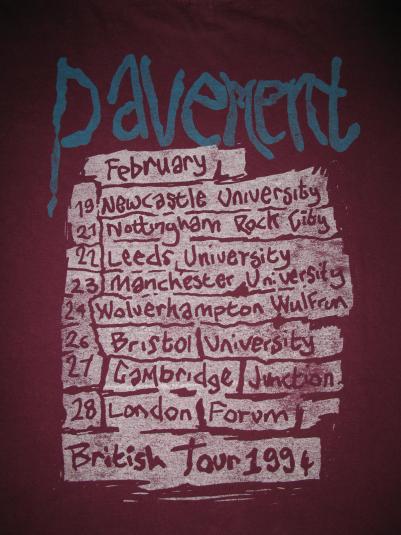 pavement
February
19 Newcastle University
21 Nottingham Rock City
22 Leeds University
23 Manchester University
24 Wolverhampton Wulfrun
26 Bristol University
27 Cambridge Junction
28 London Forum
British Tour 1994